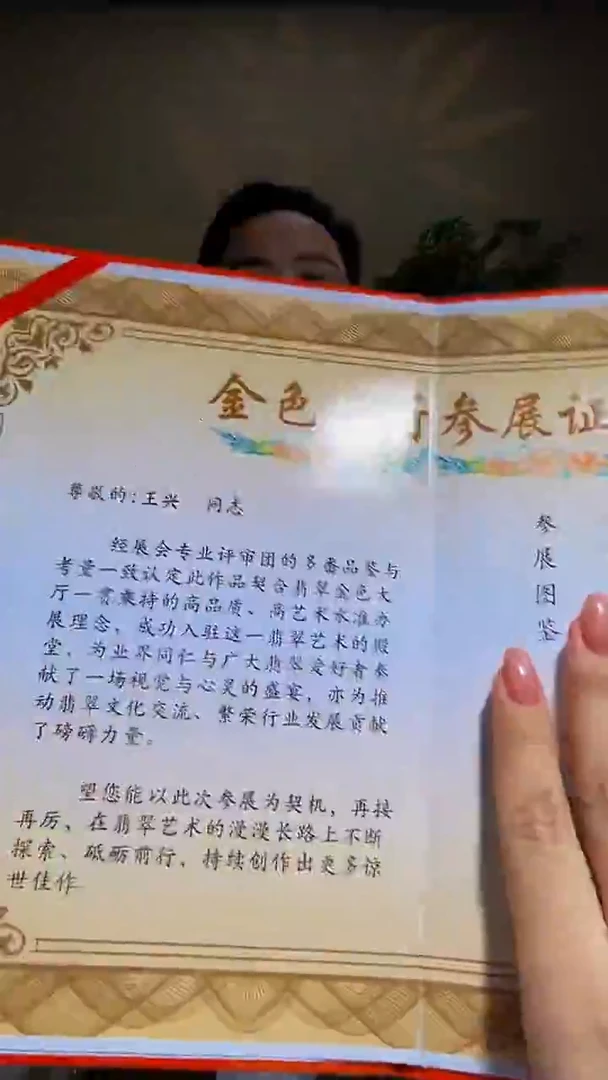 金色 参展证
尊敬的:王兴 同志
经展会专业评审团的多番品鉴与
考量一致认定此作品契合翡翠金色大
厅一贯秉持的高品质、高艺术水准办
展理念，成功入驻这一翡翠艺术的殿
堂，为业界同仁与广大翡翠爱好者奉
献了一场视觉与心灵的盛宴，亦为推
动翡翠文化交流、繁荣行业发展贡献
了磅礴力量。
望您能以此次参展为契机，再接
再厉、在翡翠艺术的漫漫长路上不断
探索、砥砺前行，持续创作出更多惊
世佳作
参
展
图
鉴